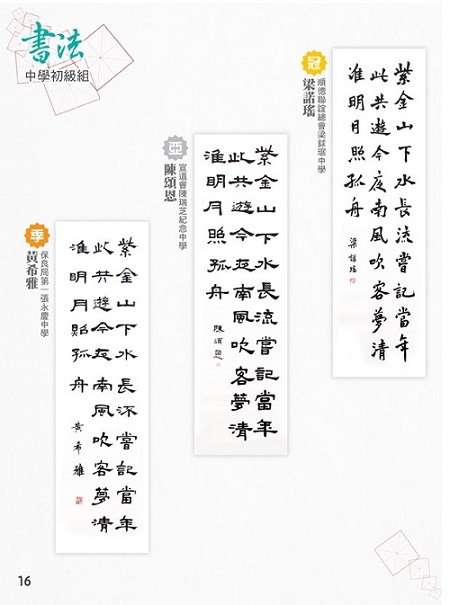 書法
中學初級組
冠
順德聯誼總會梁銶琚中學
梁諾瑤
紫金山下水長流嘗記當年
此共遊今夜南風吹客夢清
淮明月照孤舟
梁諾瑤
亞
宣道會陳瑞芝紀念中學
陳頌恩
紫金山下水長流嘗記當年
此共遊今夜南風吹客夢清
淮明月照孤舟
陳頌恩
季
保良局第一張永慶中學
黃希雅
紫金山下水長流嘗記當年
此共遊今夜南風吹客夢清
淮明月照孤舟
黃希雅
16